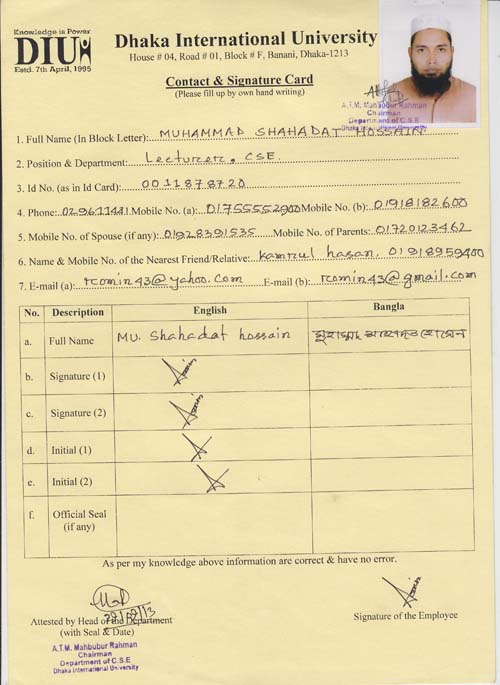 Knowledge is Power
DIU
Estd. 7th April, 1995
Dhaka International University
House # 04, Road # 01, Block # F, Banani, Dhaka-1213
Contact & Signature Card
(Please fill up by own hand writing)
A.T.M. Mahbubur Rahman
Chairman
Department of C.S.E
Dhaka International University
1. Full Name (In Block Letter): MUHAMMAD SHAHADAT HOSSAIN
2. Position & Department: Lecturer, CSE.
3. Id No. (as in Id Card): 0011878720
4. Phone: 029611421 Mobile No. (a): 01755552900 Mobile No. (b): 01918182600
5. Mobile No. of Spouse (if any): 01928391535 Mobile No. of Parents: 01720123462
6. Name & Mobile No. of the Nearest Friend/Relative: Kamrul hasan, 01918959400
7. E-mail (a): rcomin43@yahoo.com E-mail (b): rcomin43@gmail.com
No. Description English Bangla
a. Full Name MU. Shahadat hossain মুহাম্মদ শাহাদাত হোসেন
b. Signature (1)
c. Signature (2)
d. Initial (1)
e. Initial (2)
f. Official Seal
(if any)
As per my knowledge above information are correct & have no error.
Attested by Head of the Department
(with Seal & Date)
Signature of the Employee
A.T.M. Mahbubur Rahman
Chairman
Department of C.S.E
Dhaka International University